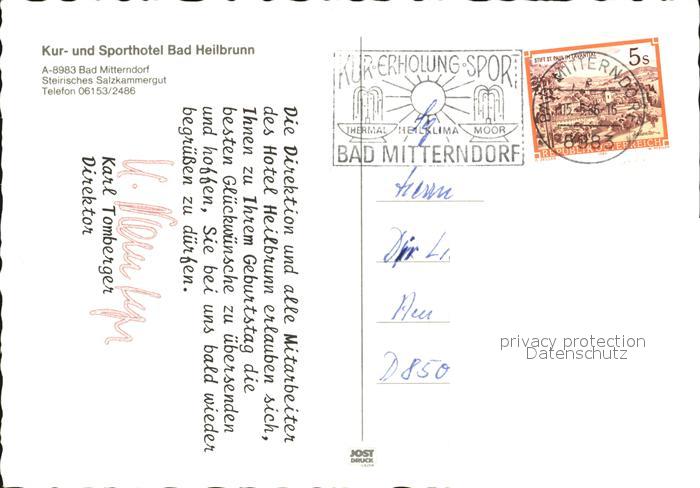 Kur- und Sporthotel Bad Heilbrunn
A-8983 Bad Mitterndorf
Steirisches Salzkammergut
Telefon 06153/2486
Die Direktion und alle Mitarbeiter
des Hotel Heilbrunn erlauben sich,
Ihnen zu Ihrem Geburtstag die
besten Glückwünsche zu übersenden
und hoffen, Sie bei uns bald wieder
begrüßen zu dürfen.
Karl Tomberger
Direktor
KUR·ERHOLUNG·SPORT
THERMAL HEILKLIMA MOOR
BAD MITTERNDORF
STIFT ST. PAUL IM LAVANTTAL
5s
REPUBLIK ÖSTERREICH
MITTERNDORF
8983
Herrn
D850
privacy protection
Datenschutz
JOST
DRUCK